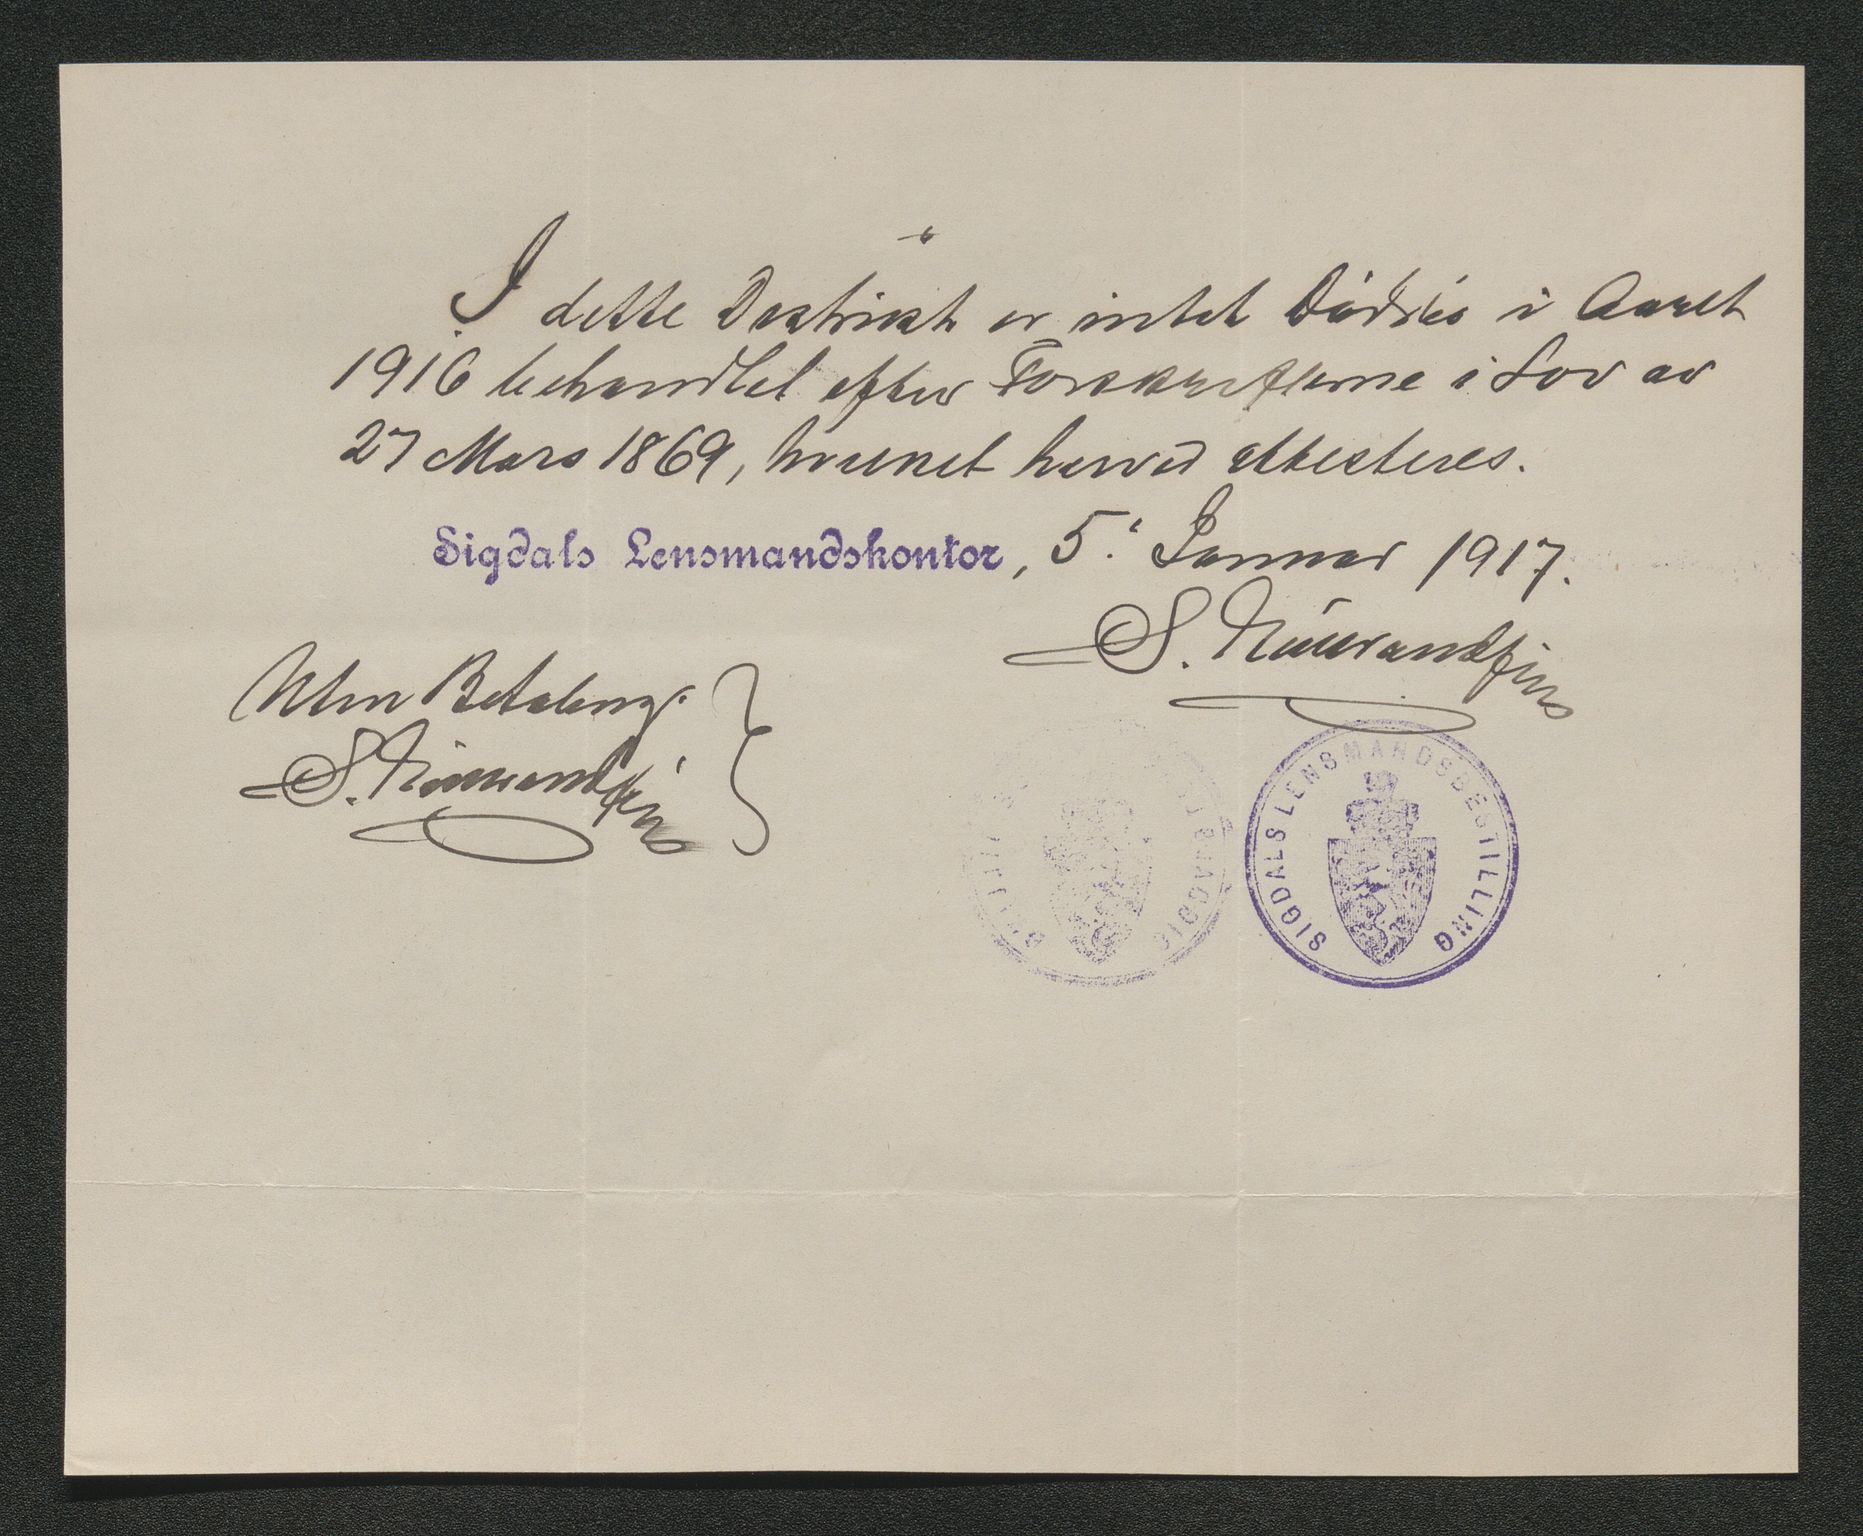 I dette Distrikt er intet Dødsbo i Aaret
1916 behandlet efter Forskrifterne i Lov av
27 Mars 1869, hvilket herved attesteres.
Sigdals Lensmandskontor, 5' Januar 1917.
S.
Uten Betaling.
S.
SIGDALS LENSMANDSBESTILLING